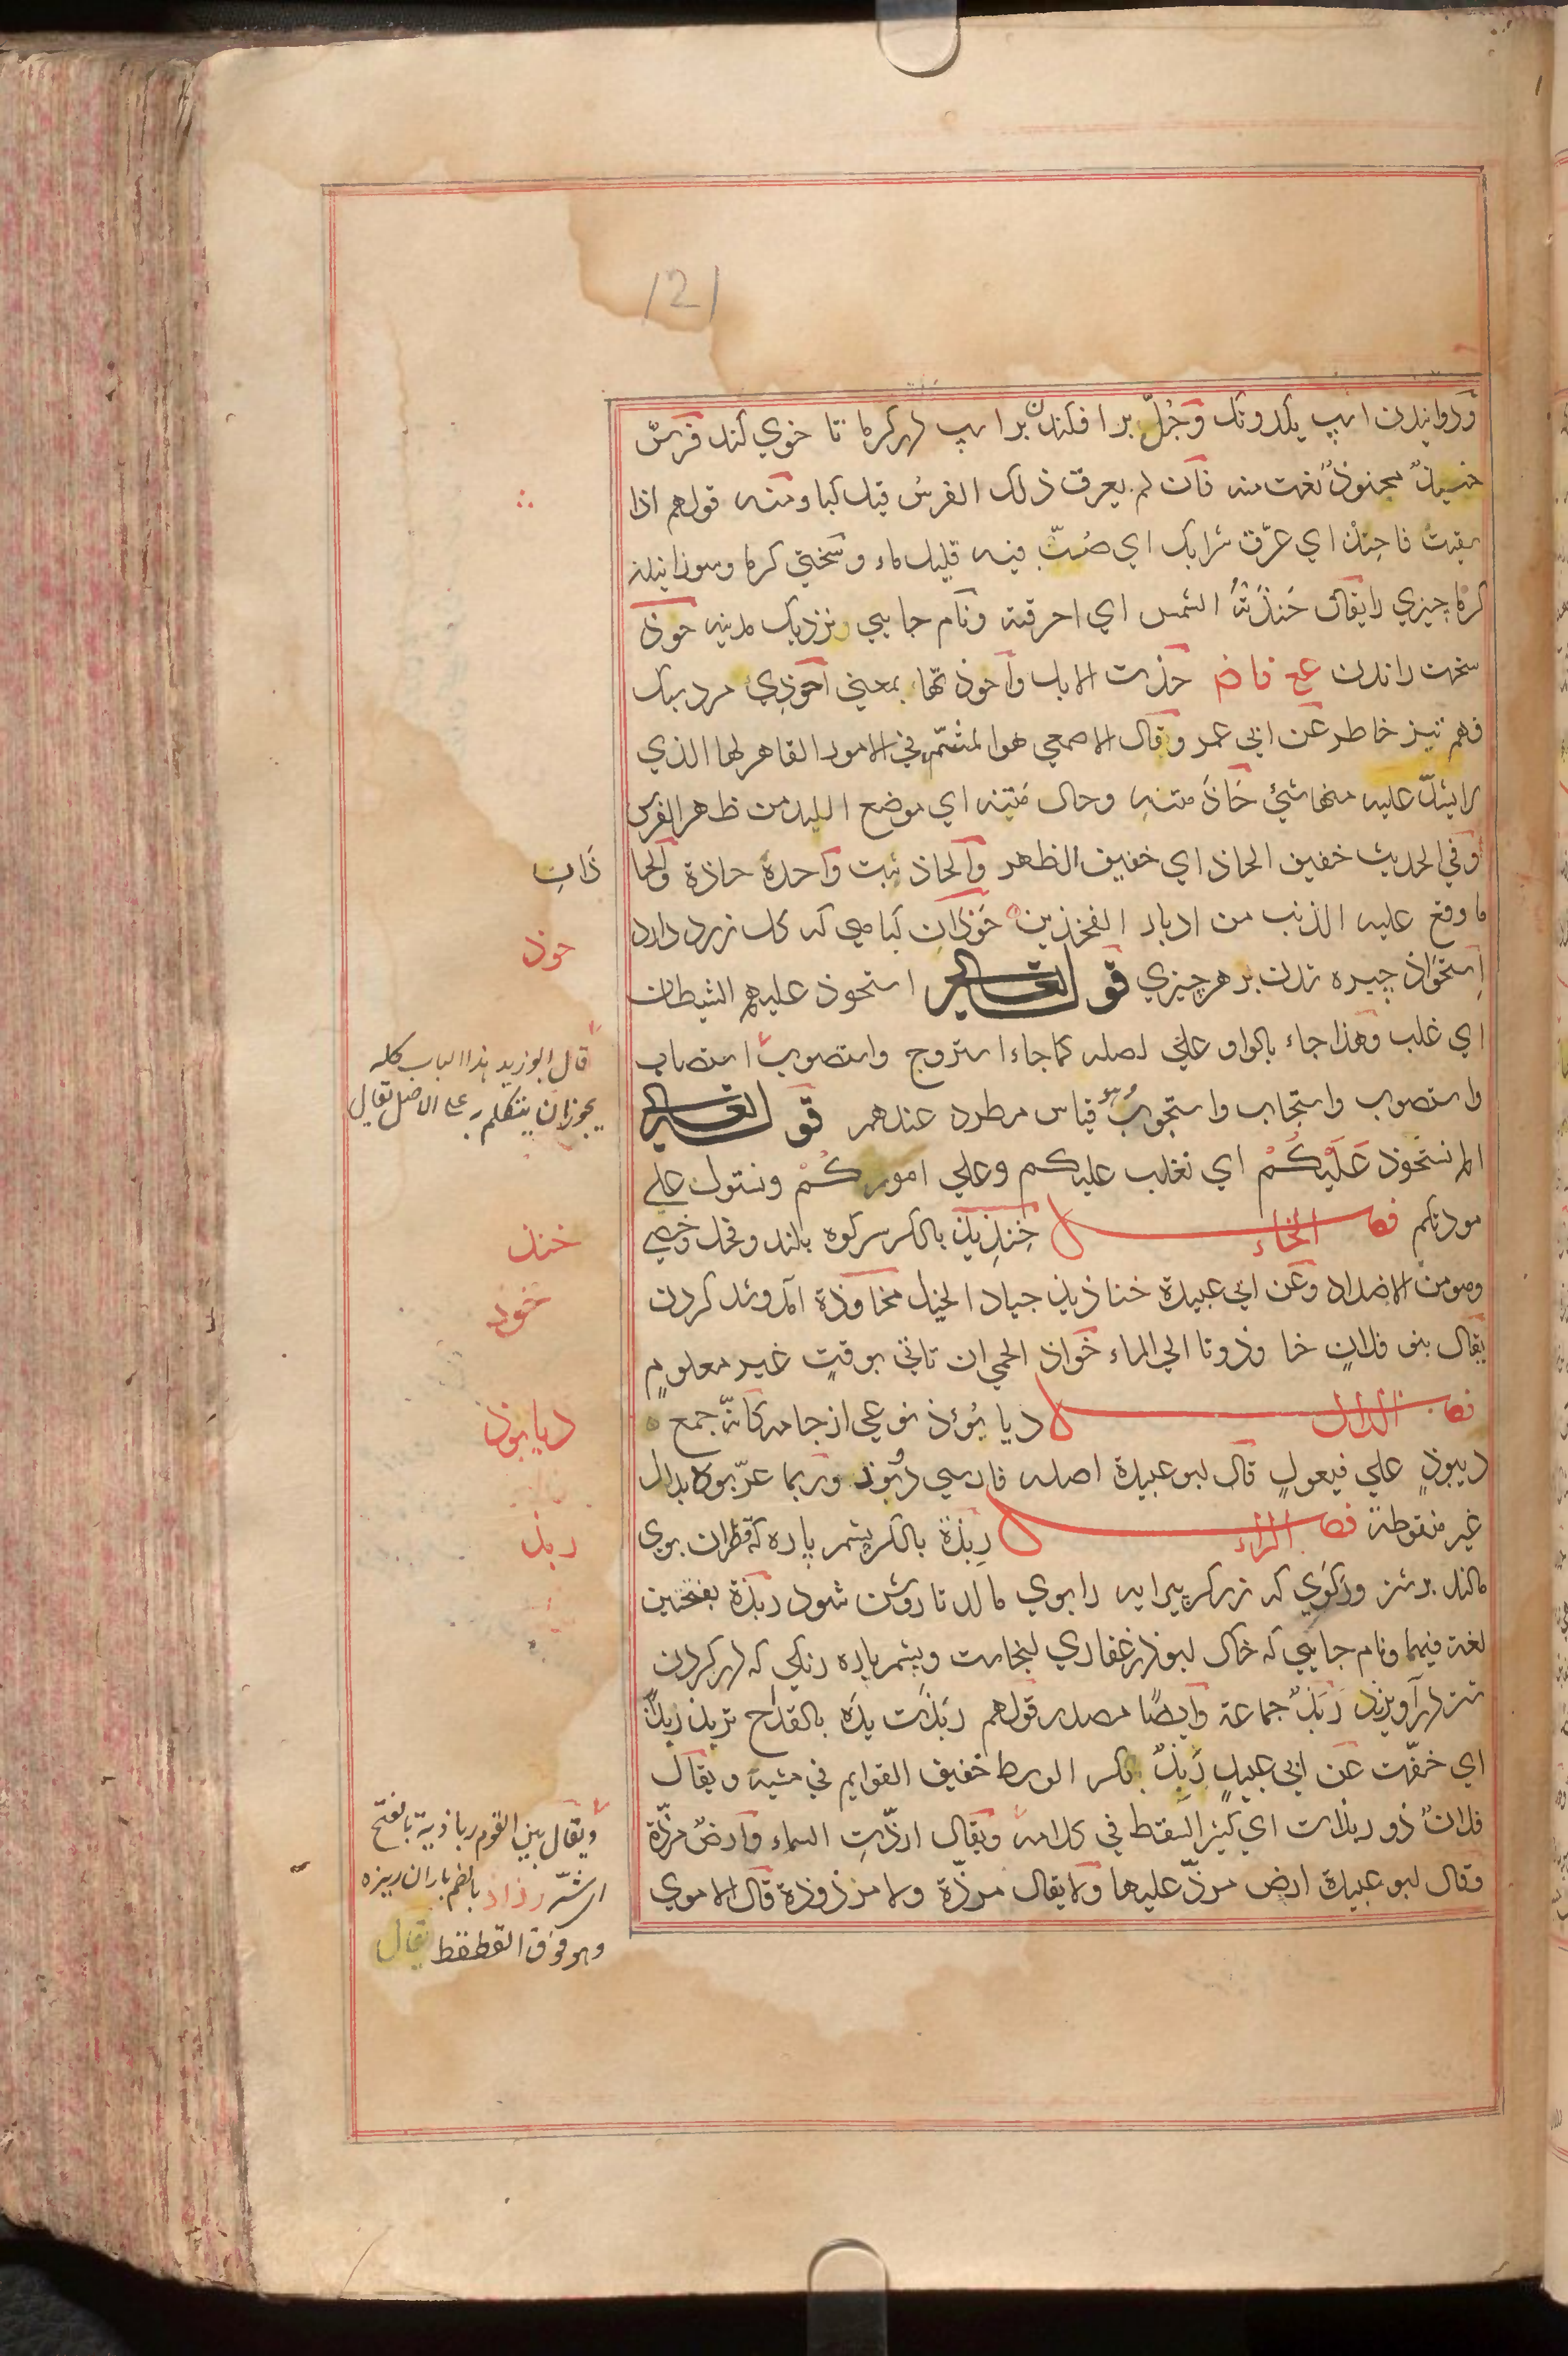 121
ودوانیدن اسپ یکدوتک وجُلّ برافکندن بر اسپ در کرما تا خوي کند فرسٌ
حنيذٌ محنوذٌ نعت منه فان لم يعرق ذلك الفرسُ قيل كبا ومنه قولهم اذا
سقيت فاحنِذ اي عرّق شرابك اي صُبّ فيه قليل ماء وسختي كرما وسوزانيدن
كرما چيزي را يقال حَنَذَتْهُ الشمس اي احرقته ونام جايي نزديك مدينه حوذ
سخت راندن ع فا ض حذت الابل واحوذتها بمعني احوذي مرد سبك
فهم تيز خاطر عن ابي عمر وقال الاصمعي هو المشمّر في الامور القاهر لها الذي
لا يشذّ عليه منها شئ حَاذُ متنهِ وحال مَتنه اي موضع اللبد من ظهر الفرس
وفي الحديث خفيف الحاذ اي خفيف الظهر والحاذ نبت واحدة حاذة والحا
ذَانِ
ما وقع عليه الذنب من ادبار الفخذين حَوذَانِ كياهي كه كل زرد دارد
حوذ
اِستحوَاذ چيره شدن بر هر چيزي قوله تعالى استحوذ عليهم الشيطان
اي غلب وهذا جاء بالواو علي اصله كما جاء استروح واستصوب استصاب
قال ابو زيد هذا الباب كله
يجوز ان يتكلم به على الاصل تقال
واستصوب واستجاب واستجوب قياس مطرد عندهم قوله تعالى
الم نستحوذ عَلَيْكُمْ اي نغلب عليكم وعلي اموركُمْ ونستول علي
مودتكم فصل الخاء خِنذِيذ بالكسر سر كوه بلند وفحل وخصي
خنذ
وهو من الاضداد وعن ابي عبيدة خناذيذ جياد الخيل مخاوذة آمد وشد كردن
خوذ
يقال بنو فلانٍ خاوذونا الي الماء خواذ الحمي ان تاتي بوقتٍ غير معلومٍ
فصل الدال ديابُوذ نوعي از جامه كانّه جمع
ديابوذ
ديبوذٍ علي فيعولٍ قال ابو عبيدة اصله فارسي دُبوذ وربما عرّبوه بدال
غير منقوطة فصل الراء رِبذة بالكسر پشم پاره كه قطران بوي
ربذ
مالند بر شتر ورَكوي كه زركر پيرايه را بوي مالد تا روشن شود ربذة بفتحتين
لغة فيهما ونام جايي كه خاك ابوذر غفاري انجاست وپشم پاره رنكي كه در كردن
شتر در آويزند رَبَذٌ جماعة وايضًا مصدر قولهم ربذت يدَه بالقداح تربذ ربذًا
اي خفّت عن ابي عبيدٍ رَبِذٌ بكسر الوسط خفيف القوايم في مشيه ويقال
فلانٌ ذو ربذات اي كثير السقط في كلامه ويقال ارذّتِ السماء وارضٌ مرذّة
ويقال بين القوم رباذية بالفتح
اي شرّ رذاذ بالضم باران ريزه
وهو فوق القطقط يقال
وقال ابو عبيدة ارض مرذّ عليها ولا يقال مرذّة ولا مرذوذة قال الاموي